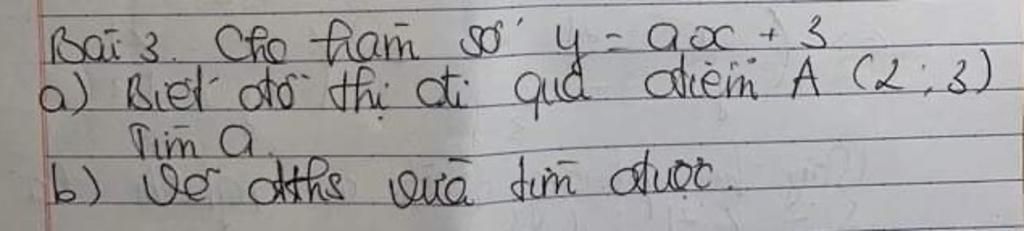 Bài 3. Cho hàm số y = ax + 3
a) Biết đồ thị đi qua điểm A (2; 3)
Tìm a
b) Vẽ đths vừa tìm được.